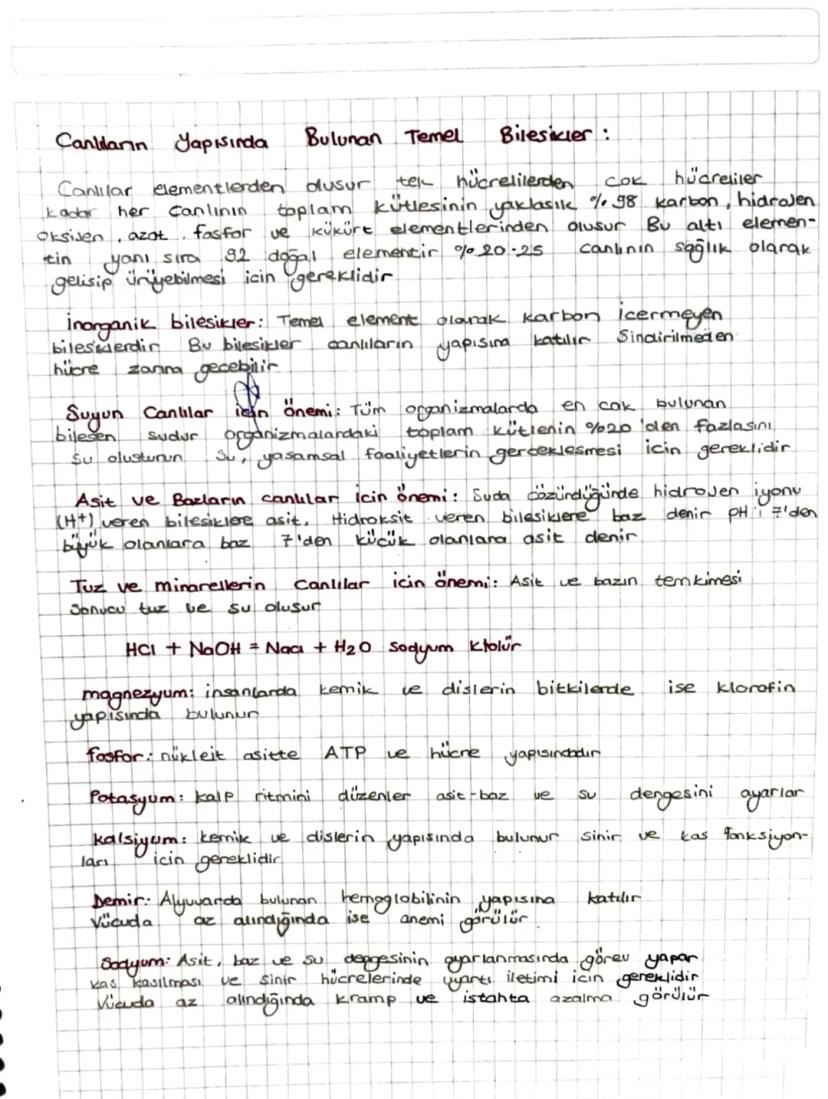 Canlıların Yapısında Bulunan Temel Bilesikler :
Canlılar elementlerden olusur tek hücrelilerden cok hücreliler
kadar her canlının toplam kütlesinin yaklasık %98 karbon, hidrojen
oksijen, azot, fosfor ve kükürt elementlerinden olusur Bu altı elemen-
tin yanı sıra 92 doğal elementir %20-25 canlının sağlık olarak
gelisip üriyebilmesi icin gereklidir
inorganik bilesikler: Temel element olarak karbon icermeyen
bilesiklerdir Bu bilesikler canlıların yapısına katılır Sindirilmeden
hücre zarına gecebilir
Suyun Canlılar icin önemi: Tüm organizmalarda en cok bulunan
bilesen sudur organizmalardaki toplam kütlenin %20'den fazlasını
su olusturur Su, yasamsal faaliyetlerin gerceklesmesi icin gereklidir
Asit ve Bazların canlılar icin önemi: Suda cözündüğünde hidrojen iyonu
(H+) veren bilesiklere asit, Hidroksit veren bilesiklere baz denir pH'ı 7'den
büyük olanlara baz 7'den kücük olanlara asit denir
Tuz ve minarellerin Canlılar icin önemi: Asit ve bazın temkimesi
Sonucu tuz ve su olusur
HCl + NaOH = Nacl + H2O Sodyum Klolür
magnezyum: insanlarda kemik ve dislerin bitkilerde ise klorofin
yapısında bulunur
fosfor: nükleit asitte ATP ve hücre yapısındadır
Potasyum: kalp ritmini düzenler asit-baz ve su dengesini ayarlar
kalsiyum: kemik ve dislerin yapısında bulunur sinir ve kas fonksiyon-
ları icin gereklidir
Demir: Alyuvarda bulunan hemoglobilinin yapısına katılır
Vücuda az alındığında ise anemi görülür
Sodyum: Asit, baz ve su dengesinin ayarlanmasında görev yapar
kas kasılması ve sinir hücrelerinde uyartı iletimi icin gereklidir
Vücuda az alındığında kramp ve istahta azalma görülür